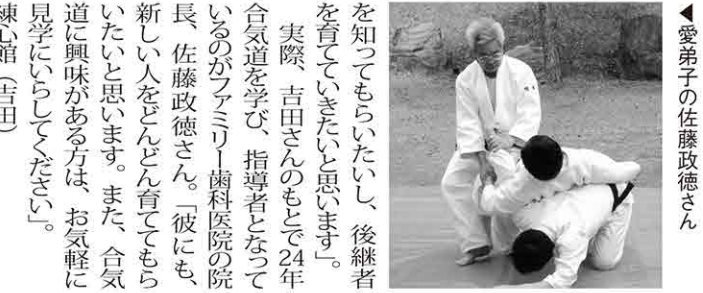 ◀愛弟子の佐藤政徳さん
を知ってもらいたいし、後継者
を育てていきたいと思います」。
実際、吉田さんのもとで24年
合気道を学び、指導者となって
いるのがファミリー歯科医院の院
長、佐藤政徳さん。「彼にも、
新しい人をどんどん育ててもら
いたいと思います。また、合気
道に興味がある方は、お気軽に
見学にいらしてください」。
練心館（吉田）